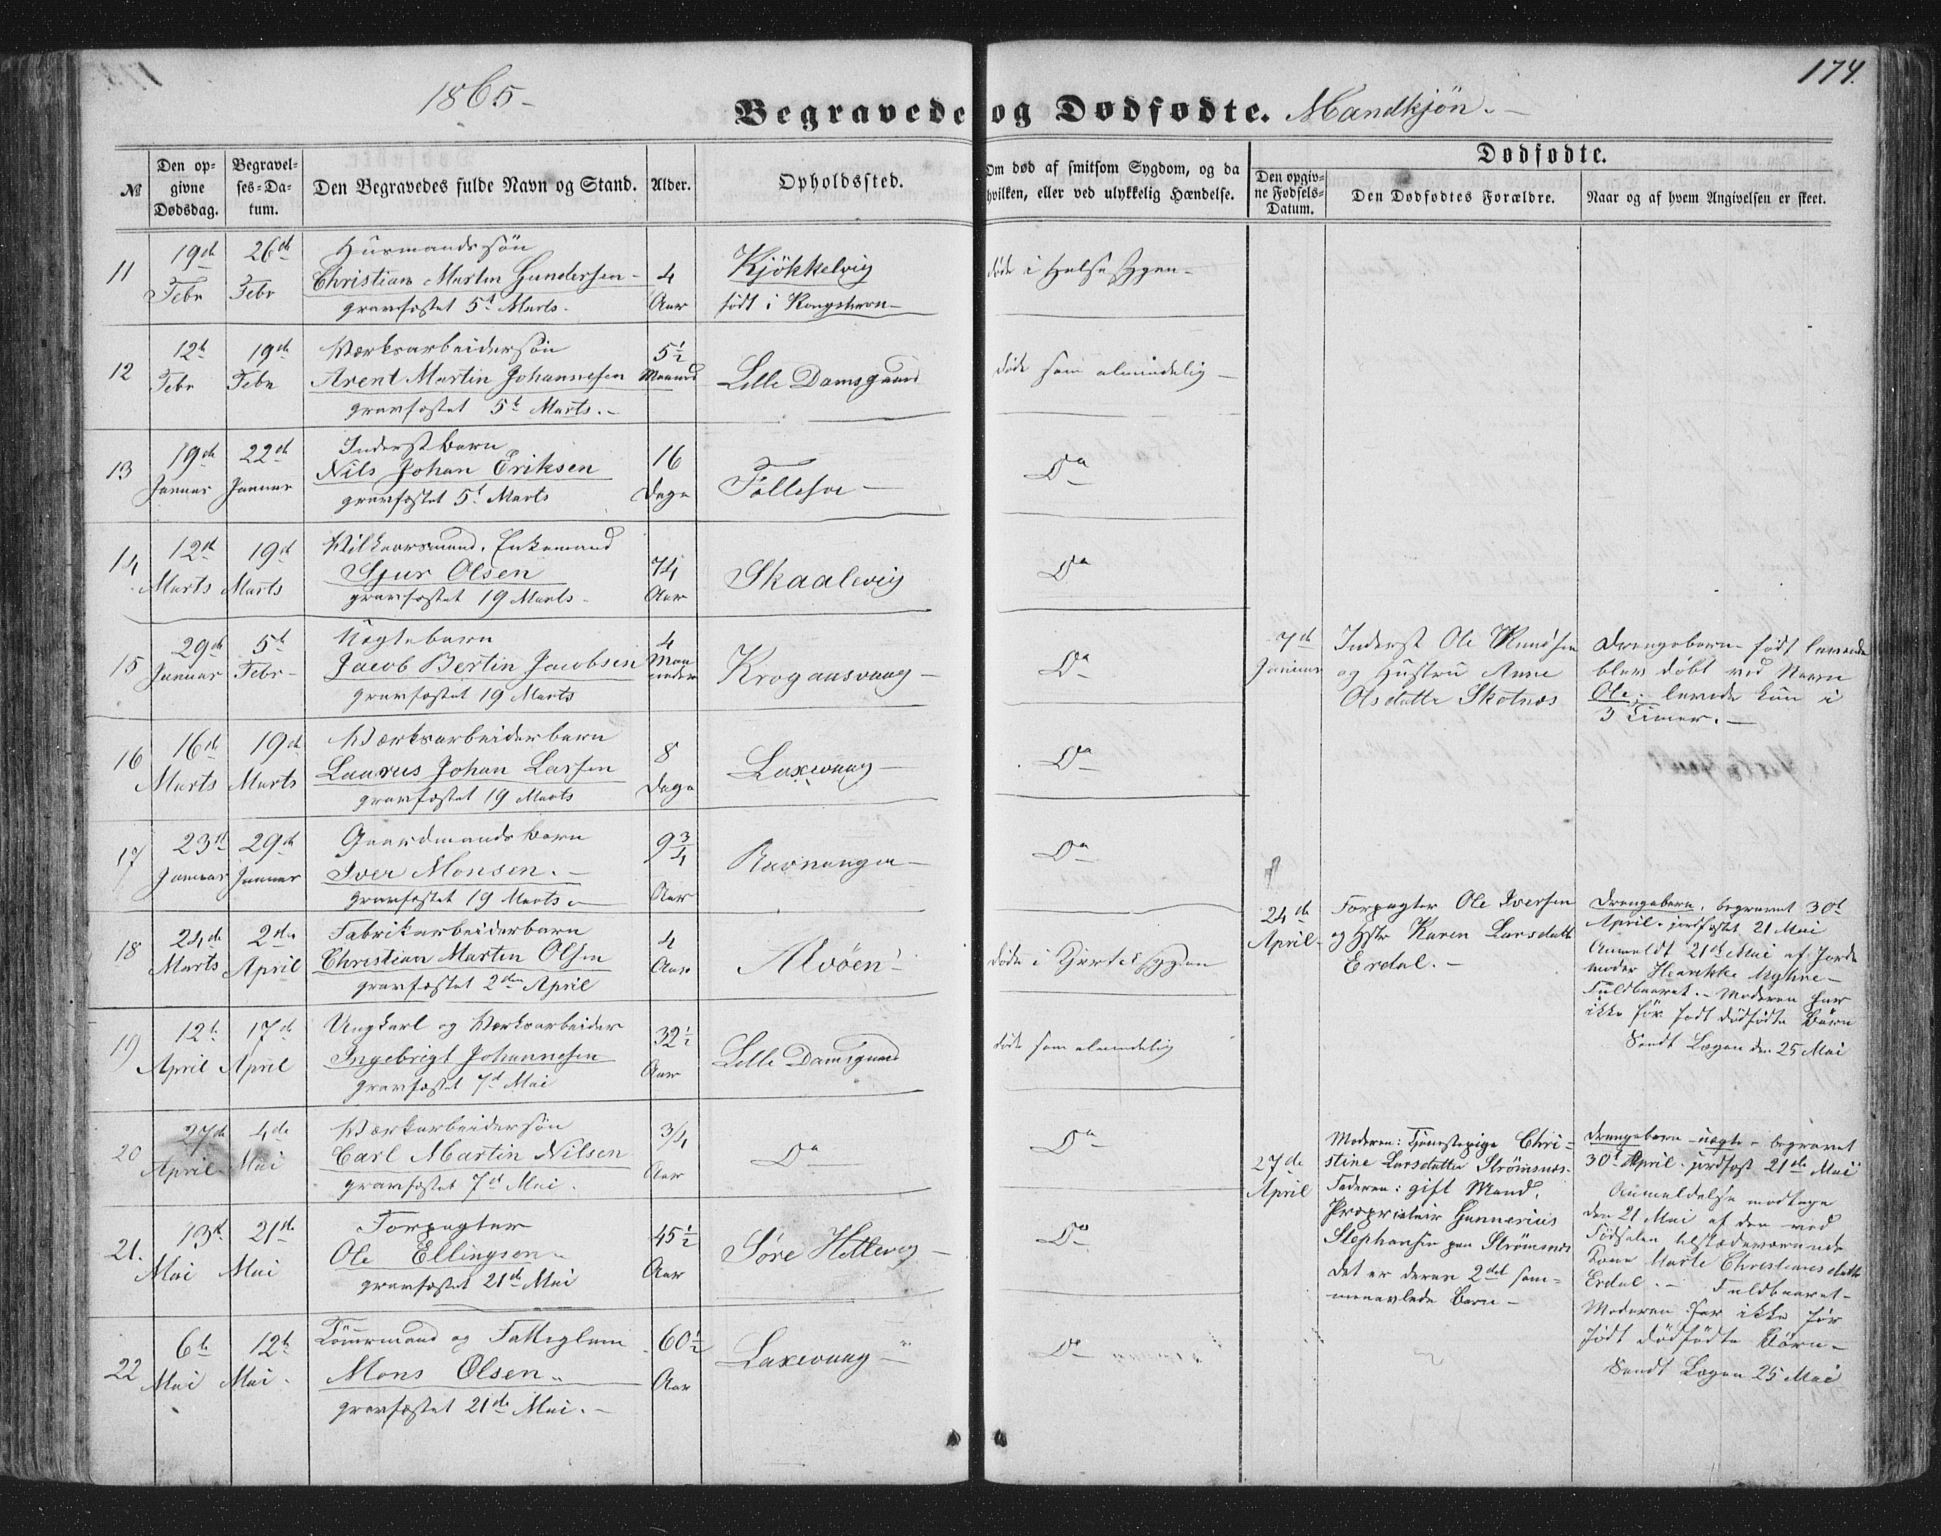 174.
1865-
Begravede og Dødfødte. Mandkjøn.-
№
Den opgivne Dødsdag.
Begravelses-Datum.
Den Begravedes fulde Navn og Stand.
Alder.
Opholdssted.
Om død af smitsom Sygdom, og da hvilken, eller ved ulykkelig Hændelse.
Dødfødte.
Den opgivne Fødsels-Datum.
Den Dødfødtes Forældre.
Naar og af hvem Angivelsen er skeet.
11
19de Febr
26de Febr
Huusmandssøn
Christian Martin Gundersen
gravfæstet 5t Marts.
4 Aar
Kjökkelvig
født i Kongshavn
døde i Halssygen-
12
12te Febr
19de Febr
Værksarbeidersøn
Arent Martin Johannesen
gravfæstet 5t Marts.-
5½ Maaned
Lille Damsgaard
døde som almindelig
13
19de Januar
22de Januar
Inderstbarn
Nils Johan Eriksen
gravfæstet 5t Marts
16 Dage
Follesøe
Do
14
12te Marts
19de Marts
Vilkaarsmand. Enkemand
Sjur Olsen
gravfæstet 19 Marts.
74 Aar
Skaalevig
Do
15
29de Januar
5t Febr-
Uægtebarn
Jacob Bertin Jacobsen
gravfæstet 19 Marts
4 Maaneder
Krogaasvaag
Do
7de Januar
Inderst Ole Knudsen
og Hustru Anne
Olsdatter Skotnæs
Drengebarn født levende
blev døbt ved Navn
Ole; levede kun i
3 Timer.-
16
16de Marts
19de Marts
Værksarbeiderbarn
Laurus Johan Larsen
gravfæstet 19 Marts
8 Dage
Laxevaag
Do
17
23de Januar
29de Januar
Gaardmandsbarn
Iver Monsen.-
gravfæstet 19 Marts
9¾ Aar
Ravnanger
Do
18
24de Marts
2den April
Fabrikarbeiderbarn
Christian Martin Olsen
gravfæstet 2den April
4 Aar
Alvöen
døde i Hjertesygen
24de April
Forpagter Ole Iversen
og Hstr Karen Larsdatter
Erdal.-
Drengebarn. begravet 30t
April. jordfæstet 21 Mai
Anmeldt 21de Mai af Jorde
moder Henrikke Myhre-
Fuldbaaret.- Moderen har
ikke før født dødfødte Børn
Sendt Lægen den 25 Mai
19
12te April
17de April
Ungkarl og Værksarbeider
Ingebrigt Johannesen
gravfæstet 7d Mai
32½ Aar
Lille Damsgaard
døde som almindelig
20
27de April
4de Mai
Værkarbeidersøn
Carl Martin Nilsen
gravfæstet 7d Mai.
3/4 Aar
Do
Do
27de April
Moderen: Tjenestepige Chri-
stine Larsdatter Strömsnæs.
Faderen: gift Mand,
Proprietair Gunnerius
Stephansen paa Strömsnæs
det er deres 2det sam-
menavlede Barn-
Drengebarn - uægte - begravet
30t April. jordfæst. 21de Mai
Anmeldelse modtaget
den 21 Mai af den ved
Fødselen tilstedeværende
Kone Marte Christiansdatter
Erdal.- Fuldbaaret-
Moderen har ikke før
født dødfødte Børn-
Sendt Lægen 25 Mai
21.
13de Mai
21de Mai
Forpagter
Ole Ellingsen
gravfæstet 21de Mai
45½ Aar
Søre Hillevig
Do
22
6te Mai
12te Mai.
Tömmermand og
Mons Olsen
gravfæstet 21de Mai.-
60½ Aar
Laxevaag
Do